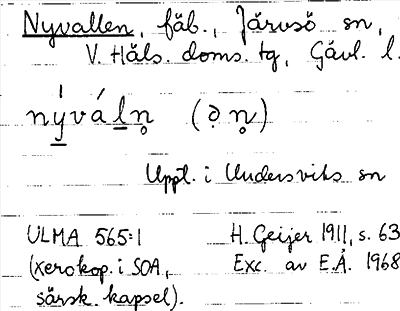 Nyvallen, fäb., Järvsö sn,
V. Häls. doms. tg, Gävl. l.
nýváln̥ (ə̣ n̥)
Uppt. i Undersviks sn
ULMA 565:1 H. Geijer 1911, s. 63
(xerokop. i SOA, Exc. av E.Å. 1968
särsk. kapsel).